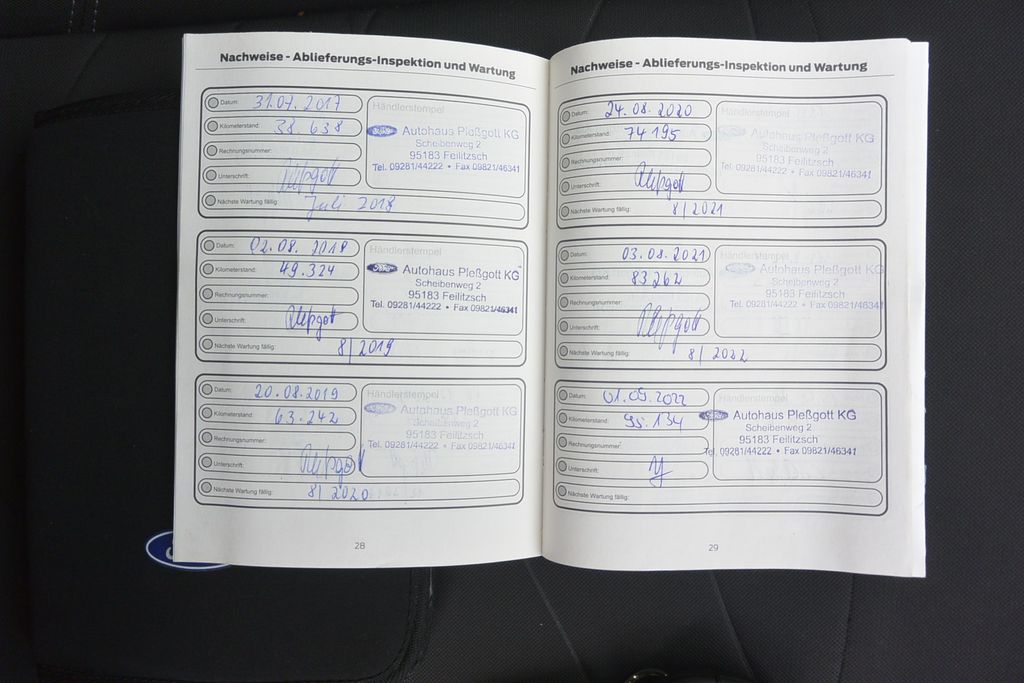 Nachweise - Ablieferungs-Inspektion und Wartung
Datum: 31.07.2017
Kilometerstand: 38.638
Rechnungsnummer:
Unterschrift: Pleßgott
Nächste Wartung fällig: Juli 2018
Händlerstempel
Ford Autohaus Pleßgott KG
Scheibenweg 2
95183 Feilitzsch
Tel. 09281/44222 • Fax 09821/46341
Datum: 02.08.2018
Kilometerstand: 49.324
Rechnungsnummer:
Unterschrift: Pleßgott
Nächste Wartung fällig: 8/2019
Händlerstempel
Ford Autohaus Pleßgott KG
Scheibenweg 2
95183 Feilitzsch
Tel. 09281/44222 • Fax 09821/46341
Datum: 20.08.2019
Kilometerstand: 63.242
Rechnungsnummer:
Unterschrift: Pleßgott
Nächste Wartung fällig: 8/2020
Händlerstempel
Ford Autohaus Pleßgott KG
Scheibenweg 2
95183 Feilitzsch
Tel. 09281/44222 • Fax 09821/46341
28
Nachweise - Ablieferungs-Inspektion und Wartung
Datum: 24.08.2020
Kilometerstand: 74 195
Rechnungsnummer:
Unterschrift: Pleßgott
Nächste Wartung fällig: 8/2021
Händlerstempel
Ford Autohaus Pleßgott KG
Scheibenweg 2
95183 Feilitzsch
Tel. 09281/44222 • Fax 09821/46341
Datum: 03.08.2021
Kilometerstand: 83262
Rechnungsnummer:
Unterschrift: Pleßgott
Nächste Wartung fällig: 8/2022
Händlerstempel
Ford Autohaus Pleßgott KG
Scheibenweg 2
95183 Feilitzsch
Tel. 09281/44222 • Fax 09821/46341
Datum: 01.09.2022
Kilometerstand: 95.134
Rechnungsnummer:
Unterschrift:
Nächste Wartung fällig:
Händlerstempel
Ford Autohaus Pleßgott KG
Scheibenweg 2
95183 Feilitzsch
Tel. 09281/44222 • Fax 09821/46341
29